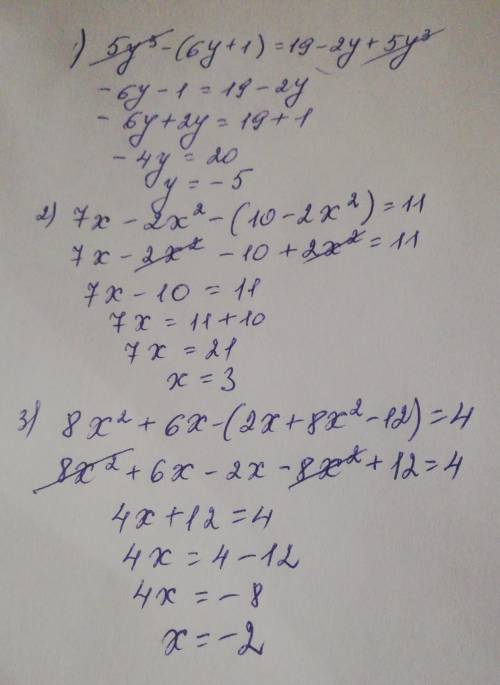 1) 5y³ - (6y + 1) = 19 - 2y + 5y³
- 6y - 1 = 19 - 2y
- 6y + 2y = 19 + 1
- 4y = 20
y = - 5
2) 7x - 2x² - (10 - 2x²) = 11
7x - 2x² - 10 + 2x² = 11
7x - 10 = 11
7x = 11 + 10
7x = 21
x = 3
3) 8x² + 6x - (2x + 8x² - 12) = 4
8x² + 6x - 2x - 8x² + 12 = 4
4x + 12 = 4
4x = 4 - 12
4x = - 8
x = - 2